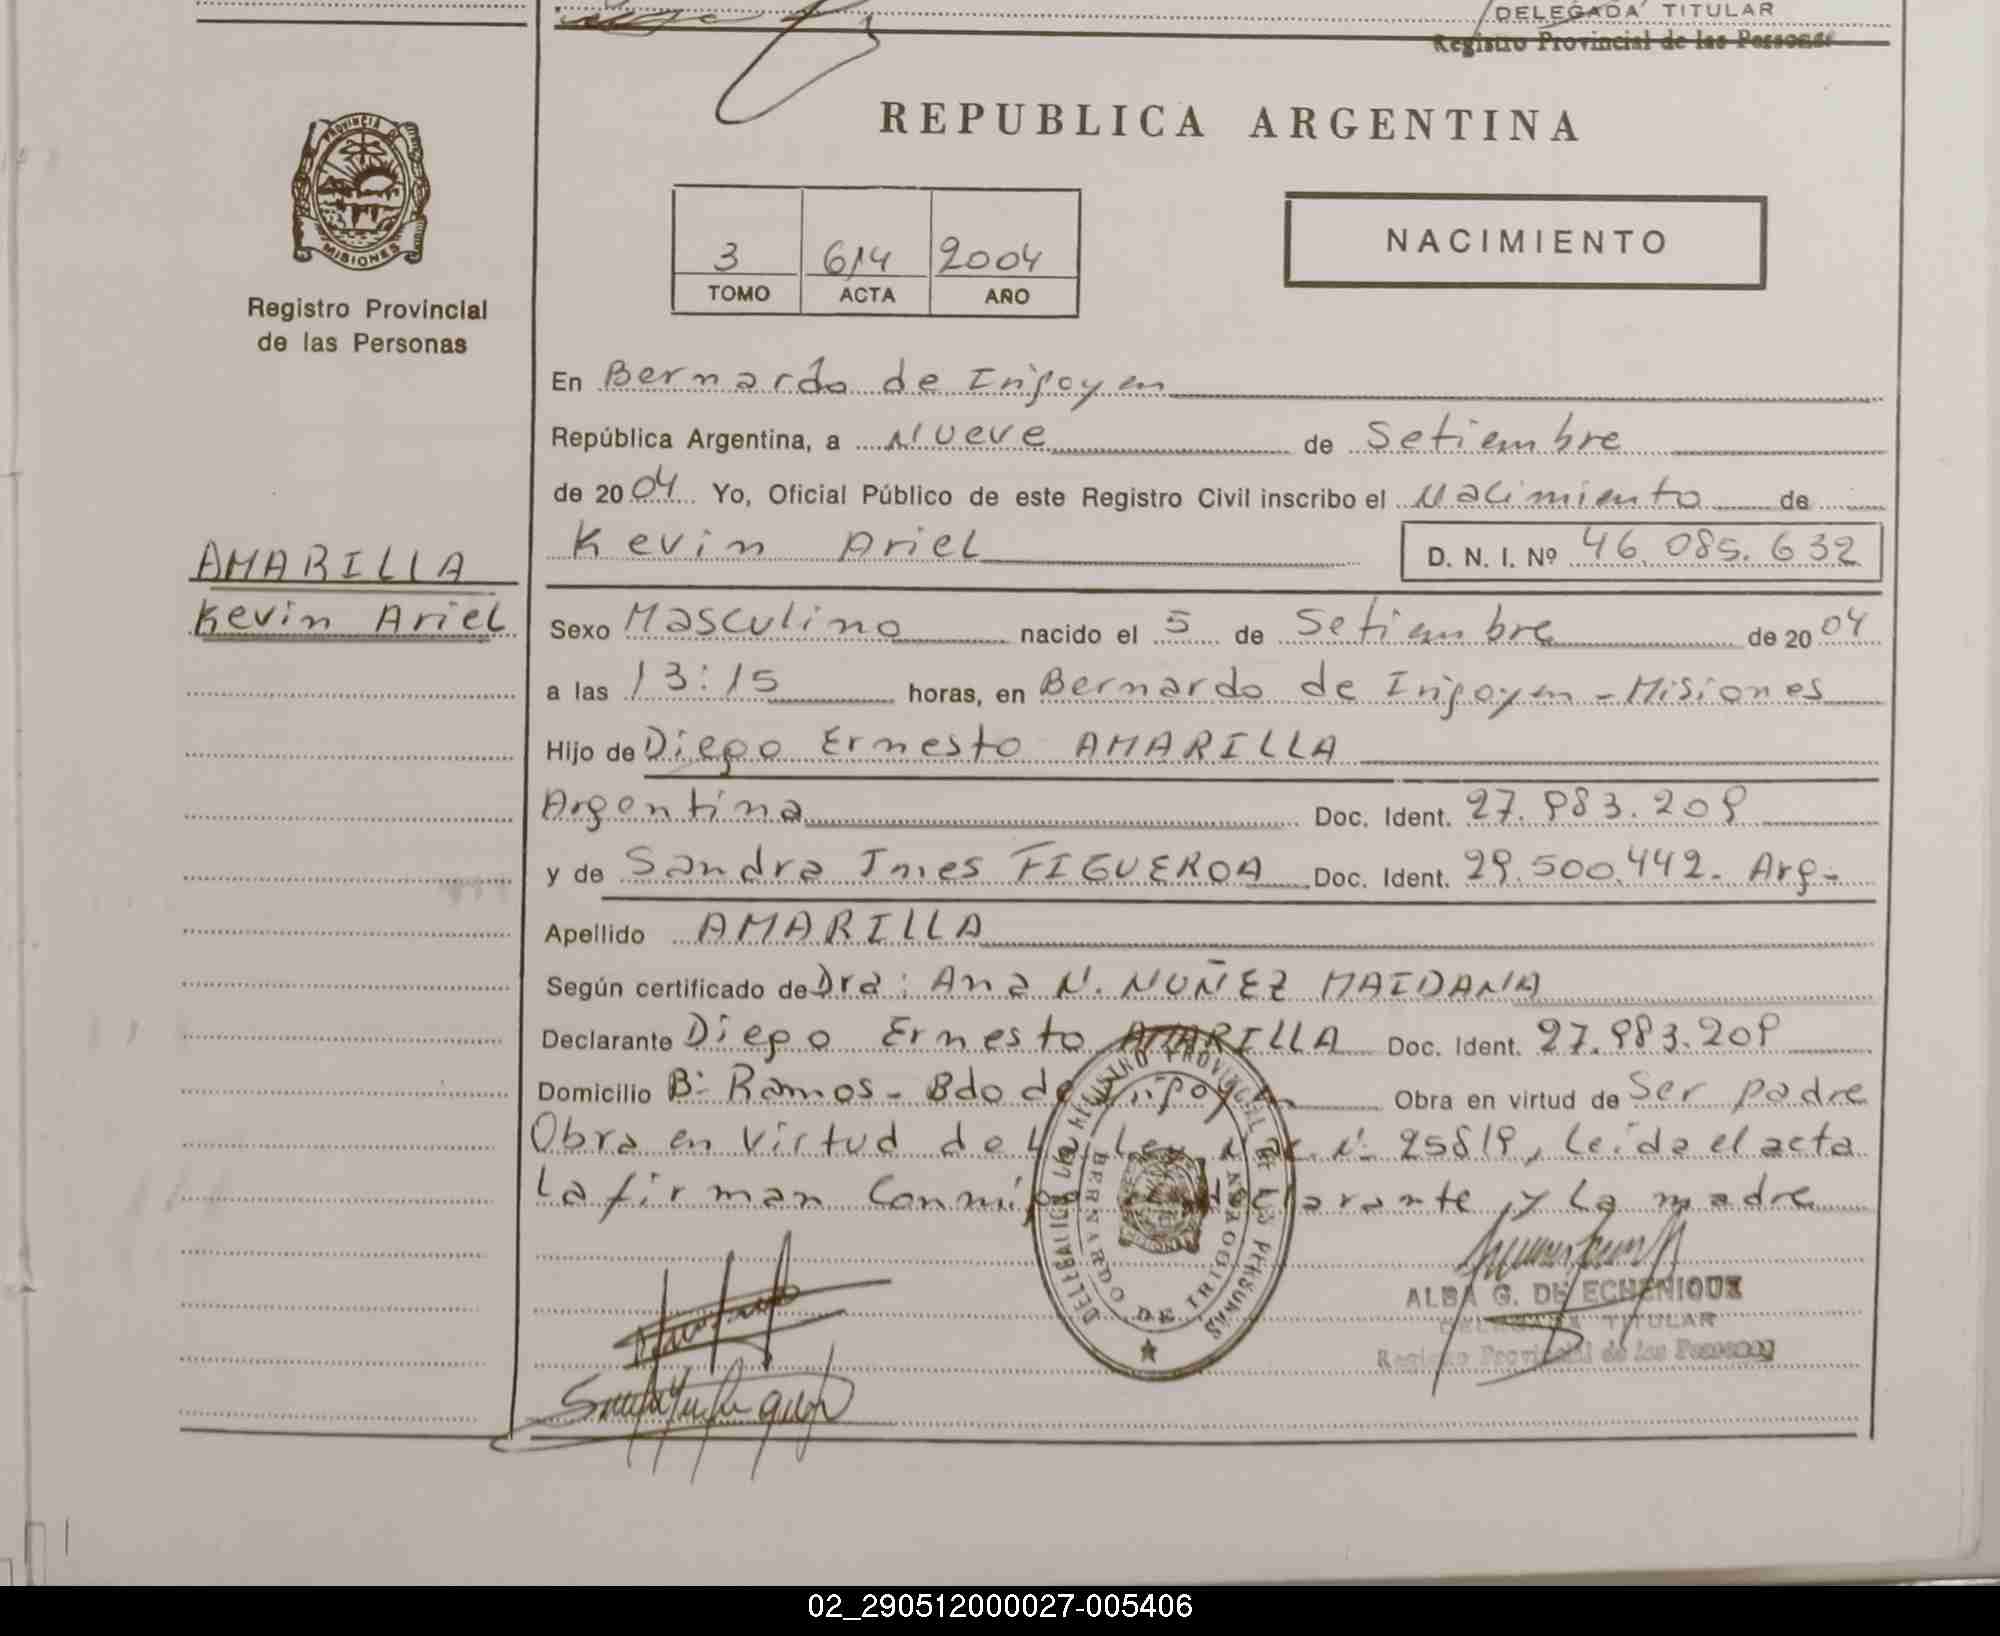 DELEGADA TITULAR
Registro Provincial de las Personas
PROVINCIA DE
MISIONES
Registro Provincial
de las Personas
REPUBLICA ARGENTINA
3 614 2004
TOMO ACTA AÑO
NACIMIENTO
En Bernardo de Irigoyen
República Argentina, a Nueve de Setiembre
de 2004 Yo, Oficial Público de este Registro Civil inscribo el Nacimiento de
Kevin Ariel D. N. I. Nº 46.085.632
AMARILLA
Kevin Ariel
Sexo Masculino nacido el 5 de Setiembre de 2004
a las 13:15 horas, en Bernardo de Irigoyen - Misiones
Hijo de Diego Ernesto AMARILLA
Argentina Doc. Ident. 27.983.209
y de Sandra Ines FIGUEROA Doc. Ident. 29.500.442. Arg-
Apellido AMARILLA
Según certificado de Dra: Ana N. NUÑEZ MAIDANA
Declarante Diego Ernesto AMARILLA Doc. Ident. 27.983.209
Domicilio Bº Ramos - Bdo de Irigoyen Obra en virtud de Ser padre
Obra en Virtud de la Ley Nac. Nº 25819, Leída el acta
La firman Conmigo declarante y La madre
DELEGACION REGISTRO PROVINCIAL DE LAS PERSONAS
BERNARDO DE IRIGOYEN
ALBA G. DE ECHENIQUE
DELEGADA TITULAR
Registro Provincial de las Personas
02_290512000027-005406